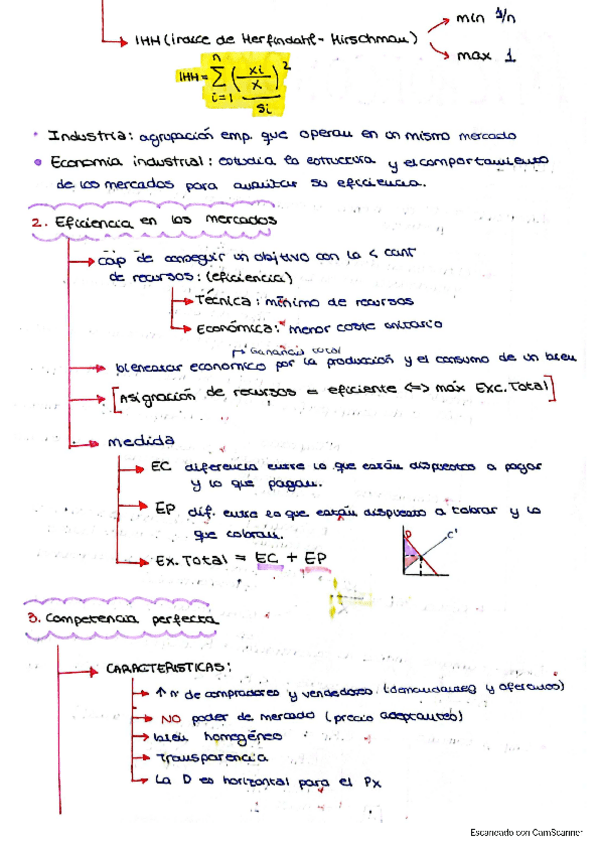 min 1/n
IHH (índice de Herfindahl - Hirschman)
max 1
IHH = n Σ i=1 (xi / X)² Si
• Industria: agrupación emp. que operan en un mismo mercado
• Economía industrial: estudia la estructura y el comportamiento
de los mercados para analizar su eficiencia.
2. Eficiencia en los mercados
cap de conseguir un objetivo con la < cant
de recursos: (eficiencia)
Técnica: mínimo de recursos
Económica: menor coste unitario
Ganancia total
bienestar económico por la producción y el consumo de un bien
[Asignación de recursos = eficiente <=> máx Exc. Total]
medida
EC diferencia entre lo que están dispuestos a pagar
y lo que pagan.
EP dif. entre lo que están dispuesto a cobrar y lo
que cobran.
D C'
Ex. Total = EC + EP
3. Competencia perfecta
CARACTERISTICAS:
↑ nº de compradores y vendedores (demandantes y oferantes)
NO poder de mercado (precio aceptantes)
bien homogéneo
Transparencia
La D es horizontal para el Px
Escaneado con CamScanner